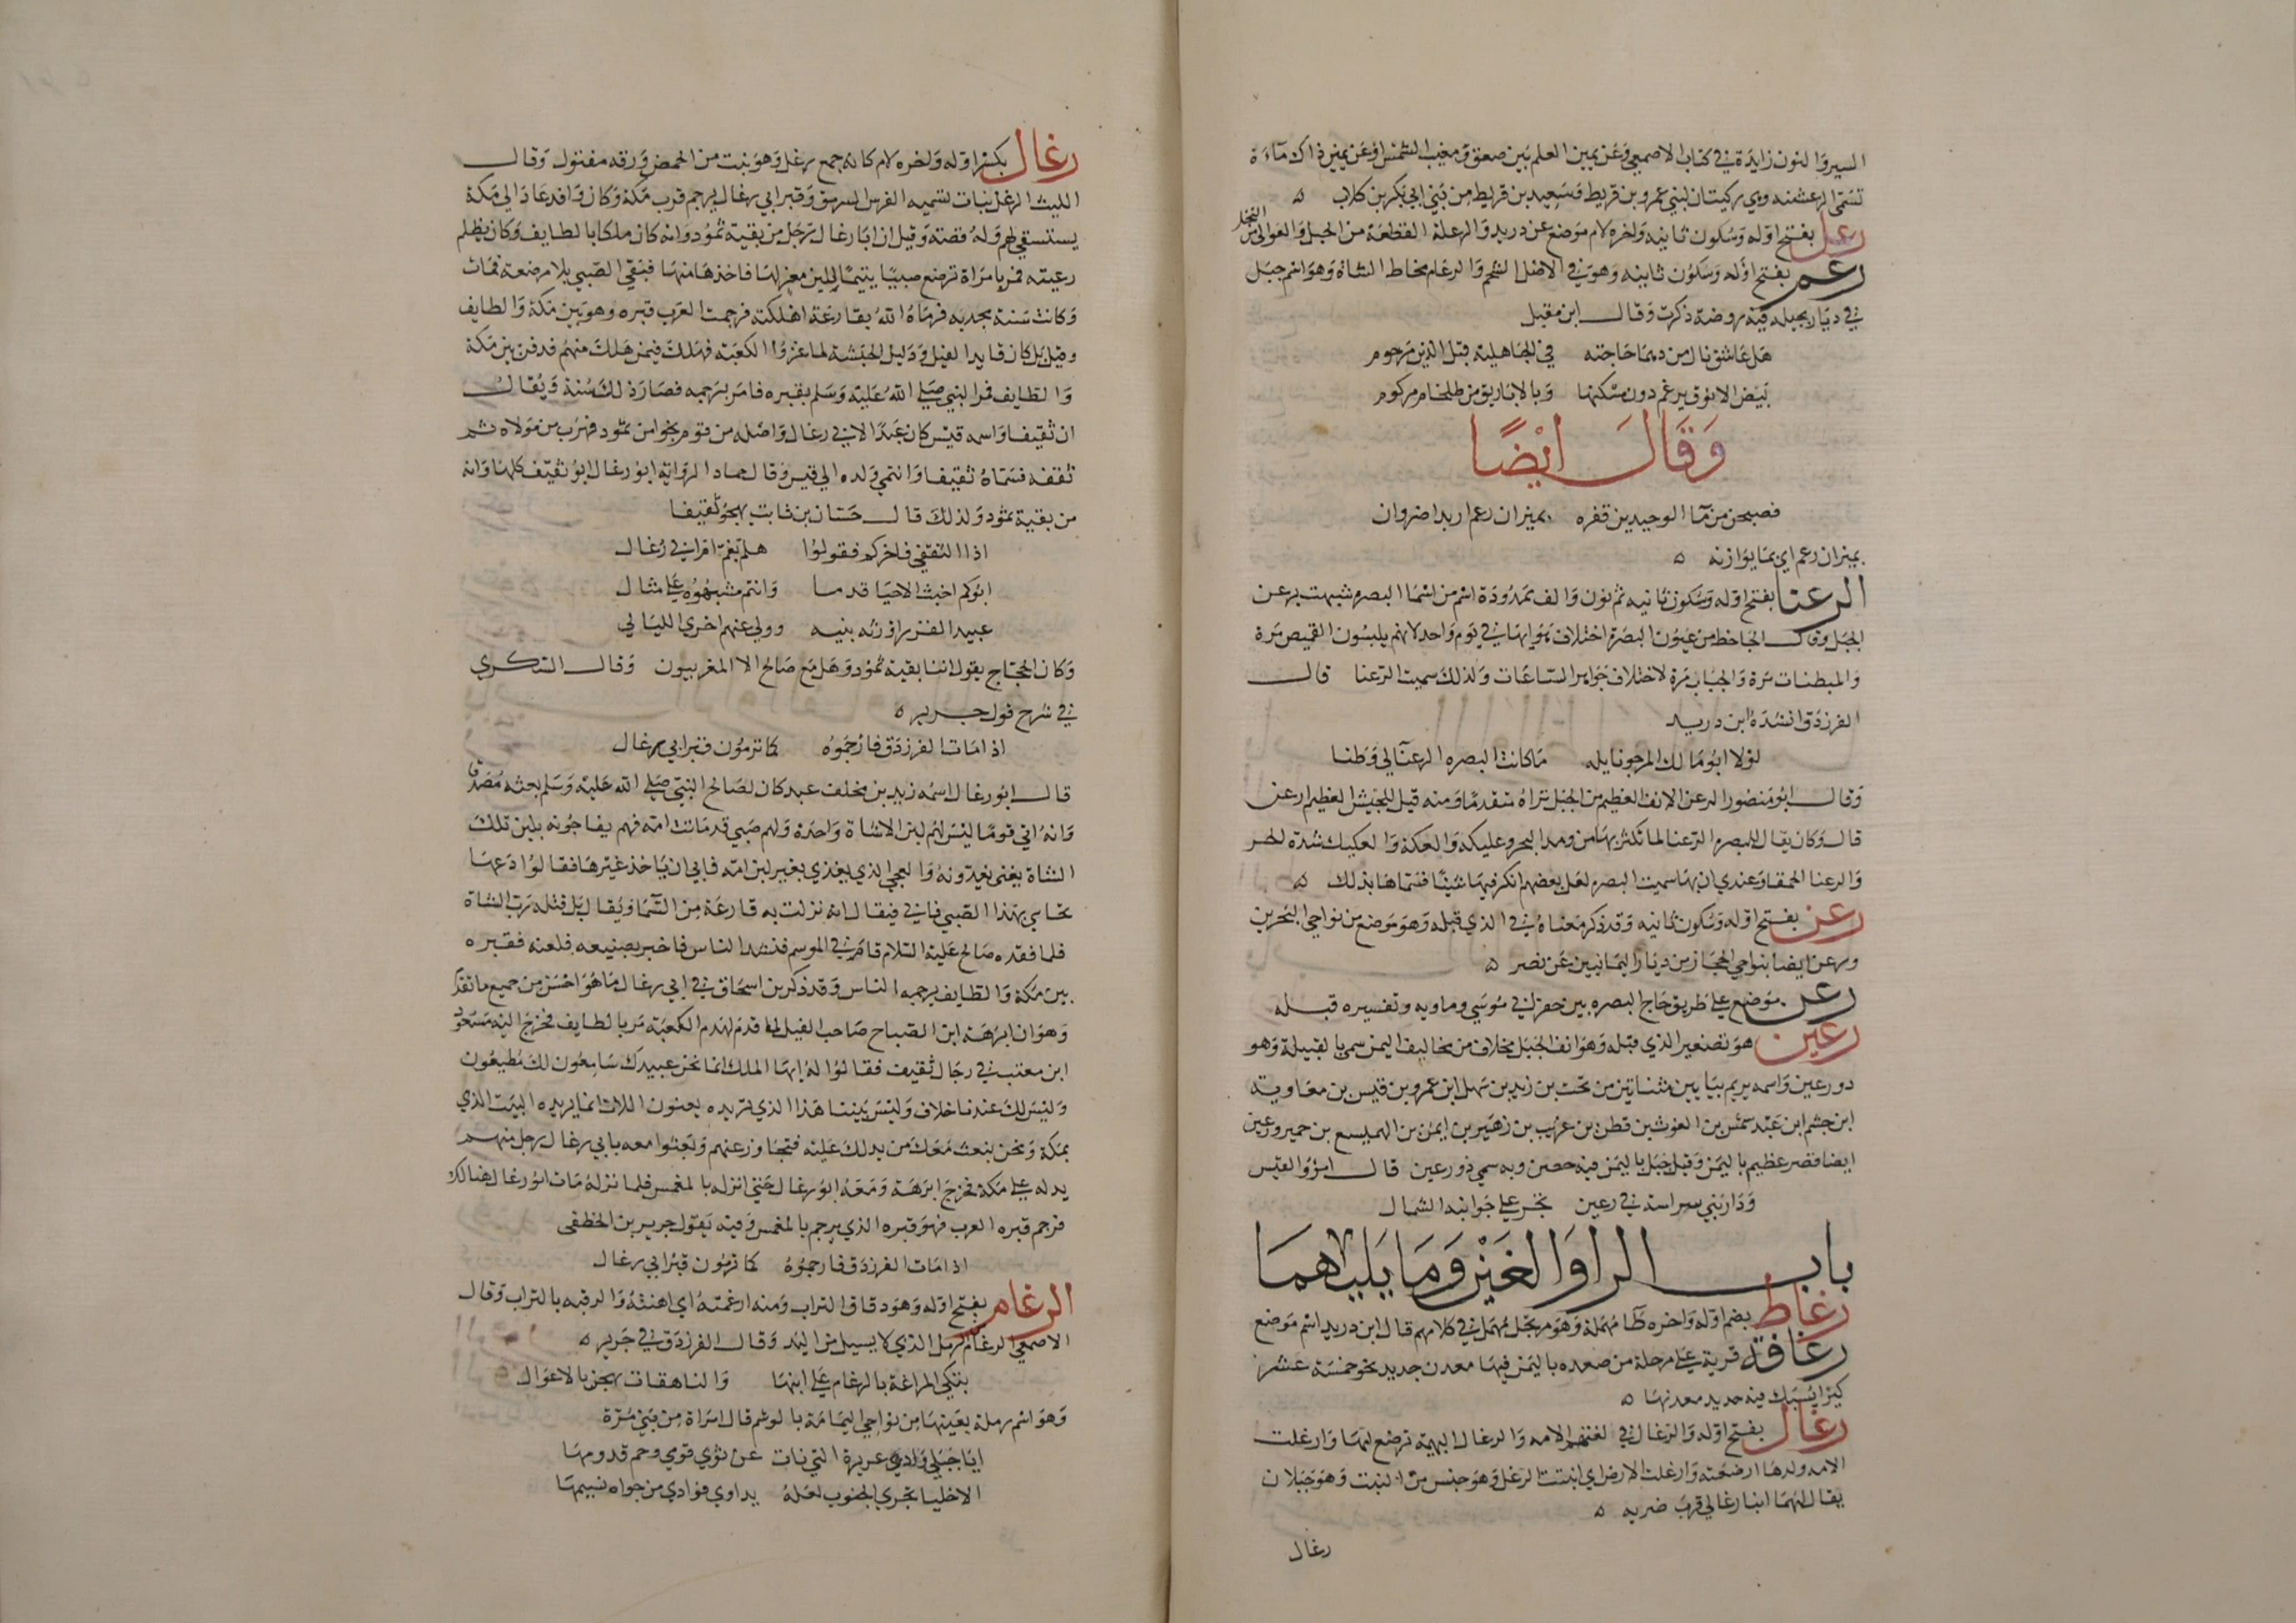 السير والنون زايدة في كتاب الاصمعي وعن يمين العلم بين صعق ومغيب الشمس او عن يمين ذاك ماءة
تسمى الرعشنه وهي ركيتان لبني عمرو بن قريط وسعيد بن قريط من بني ابي بكر بن كلاب ه
رعل بفتح اوله وسكون ثانيه واخره لام موضع عن دريد والرعلة القطعة من الخيل والعوالي من النخل
رعم بفتح اوله وسكون ثانيه وهو في الاصل الشحم والرعام مخاط الشاة وهو اسم جبل
في ديار بجيله فيه روضة ذكرت وقال ابن مقبل
هل عاشق نال من دهما حاجته في الجاهلية قبل الدين مرحوم
بيض الانوق برعم دون مسكنها وبالابارق من طلخام مركوم
وقال ايضا
فصبحن من ما الوحيدين قفره بميزان رعم اذ بدا ضروان
بميزان رعم اي بما يوازنه ه
الرعنا بفتح اوله وسكون ثانيه ثم نون والف ممدودة اسم من اسما البصره شبهت برعن
الجبل وقال الجاحظ من عيوب البصرة اختلاف هوايها في يوم واحد لانهم يلبسون القميص مرة
والمبطنات مرة والجباب مرة لاختلاف جواهر الساعات ولذلك سميت الرعنا قال
الفرزدق انشده ابن دريد
لولا ابو مالك المرجو نايله ما كانت البصره الرعنا لي وطنا
وقال ابو منصور الرعن الانف العظيم من الجبل تراه متقدما ومنه قيل للجيش العظيم ارعن
قال وكان يقال للبصره الرعنا لما تكثر بها من ومد البحر وعكيكه والعكة والعكيك شدة الحر
والرعنا الحمقا وعندي ان بها سميت البصره لعل بعضهم انكر فيها شيئا فسماها بذلك ه
رعن بفتح اوله وسكون ثانيه وقد ذكر معناه في الذي قبله وهو موضع من نواحي البحرين
ورعن ايضا بنواحي الحجاز من ديار اليمانيين عن نصر ه
رعن موضع على طريق حاج البصره بين حفر ابي موسي وماويه وتفسيره قبله
رعين هو تصغير الذي قبله وهو انف الجبل مخلاف من مخاليف اليمن سمي بالقبيلة وهو
ذو رعين واسمه يريم بيا بين مثناتين من تحت بن زيد بن سهل ابن عمرو بن قيس بن معاوية
ابن جشم ابن عبد شمس بن الغوث بن قطن بن عريب بن زهير بن ايمن بن الهميسع بن حمير ورعين
ايضا قصر عظيم باليمن وقيل جبل باليمن فيه حصن وبه سمي ذو رعين قال امرؤ القيس
ودار بني سراسة في رعين تخر على جوانبه الشمال
باب الرا والغين وما يليهما
رغاط بضم اوله واخره طا مهملة وهو مرتجل مهمل في كلامهم قال ابن دريد اسم موضع
رغافة قرية على مرحلة من صعده باليمن فيها معدن حديد نحو خمسة عشر
كيرا يسبك فيه حديد معدنها ه
رغال بفتح اوله والرغال في لغتهم الامه والرغال البهمة ترضع امها وارغلت
الامه ولدها ارضعته وارغلت الارض اي انبتت الرغل وهو جنس من النبت وهو جبلان
يقال لهما ابنا رغال قرب ضريه ه
رغال
رغال بكسر اوله واخره لام كانه جمع رغل وهو نبت من الحمض ورقه مفتول وقال
الليث الرغل نبات تسميه الفرس السرمق وقبر ابي رغال يرجم قرب مكة وكان وافد عاد الى مكة
يستسقي لهم وله قصة وقيل ان ابا رغال رجل من بقية ثمود وانه كان ملكا بالطايف وكان يظلم
رعيته فمر بامراة ترضع صبيا يتيما بلبن معز لها فاخذها منها فبقي الصبي بلا مرضعة فمات
وكانت سنة مجدبه فرماه الله بقارعة اهلكته فرجمت العرب قبره وهو بين مكة والطايف
وقيل بل كان قايد الفيل ودليل الحبشة لما غزوا الكعبة فهلك فيمن هلك منهم فدفن بين مكة
والطايف فمر النبي صلى الله عليه وسلم بقبره فامر برجمه فصار ذلك سنة ويقال
ان ثقيفا واسمه قيس كان عبدا لابي رغال واصله من قوم نجوا من ثمود فهرب من مولاه ثم
ثقفه فسماه ثقيفا وانتمى ولده الى قيس وقال حماد الرواية ابو رغال ابو ثقيف كلها وانه
من بقية ثمود ولذلك قال حسان بن ثابت يهجو ثقيفا
اذا الثقفي فاخركم فقولوا هلم نعد امر ابي رغال
ابوكم اخبث الاحيا قدما وانتم مشبهوه على مثال
عبيد الفزر اورثه بنيه وولى عنهم اخرى الليالي
وكان الحجاج يقول اننا بقية ثمود وهل مع صالح الا المقربون وقال السكري
في شرح قول جرير ه
اذا مات الفرزدق فارجموه كما ترمون قبر ابي رغال
قال ابو رغال اسمه زيد بن مخلف عبد كان لصالح النبي صلى الله عليه وسلم بعثه مصدقا
وانه اتى قوما ليس لهم لبن الا شاة واحدة ولهم صبي قد ماتت امه فهم يعاجونه بلبن تلك
الشاة يعني يغذونه والعجي الذي يغذي بغير لبن امه فابي ان ياخذ غيرها فقالوا دعها
نحابي بهذا الصبي فابى فيقال انه نزلت به قارعة من السما ويقال بل قتله رب الشاة
فلما فقده صالح عليه السلام قام في الموسم فنشد الناس فاخبر بصنيعه فلعنه فقبره
بين مكة والطايف يرجمه الناس وقد ذكر بن اسحاق في ابي رغال ما هو احسن من جميع ما تقدم
وهو ان ابرهة ابن الصباح صاحب الفيل لما قدم لهدم الكعبة مر بالطايف فخرج اليه مسعود
ابن معتب في رجال ثقيف فقالوا له ايها الملك انما نحن عبيدك سامعون لك مطيعون
وليس لك عندنا خلاف وليس بيتنا هذا الذي تريده يعنون اللات انما يريده البيت الذي
بمكة ونحن نبعث معك من يدلك عليه فتجاوز عنهم وبعثوا معه بابي رغال رجل منهم
يدله على مكة فخرج ابرهة ومعه ابو رغال حتى انزله بالمغمس فلما نزله مات ابو رغال هنالك
فرجم قبره العرب فهو قبره الذي يرجم بالمغمس وفيه يقول جرير بن الخطفى
اذا مات الفرزدق فارجموه كما ترمون قبر ابي رغال
الرغام بفتح اوله وهو دقاق التراب ومنه ارغمته اي اهنته والرقبه بالتراب وقال
الاصمعي الرغام الرمل الذي لا يسيل من اليد وقال الفرزدق في جرير ه
تبكي المراغة بالرغام على ابنها والناهقات يهجن بالاعوال
وهو اسم رملة بعينها من نواحي اليمامة بالوشم قال امراة من بني مرة
ايا جبلي وادي عريرة التي نات عن ثوي قومي وحم قدومها
الا خليا مجري الجنوب لعله يداوي فوادي من جواه نسيمها